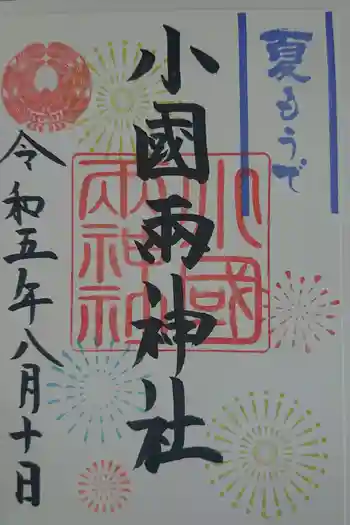 夏もうで
小國兩神社
小國兩神社
令和五年八月十日